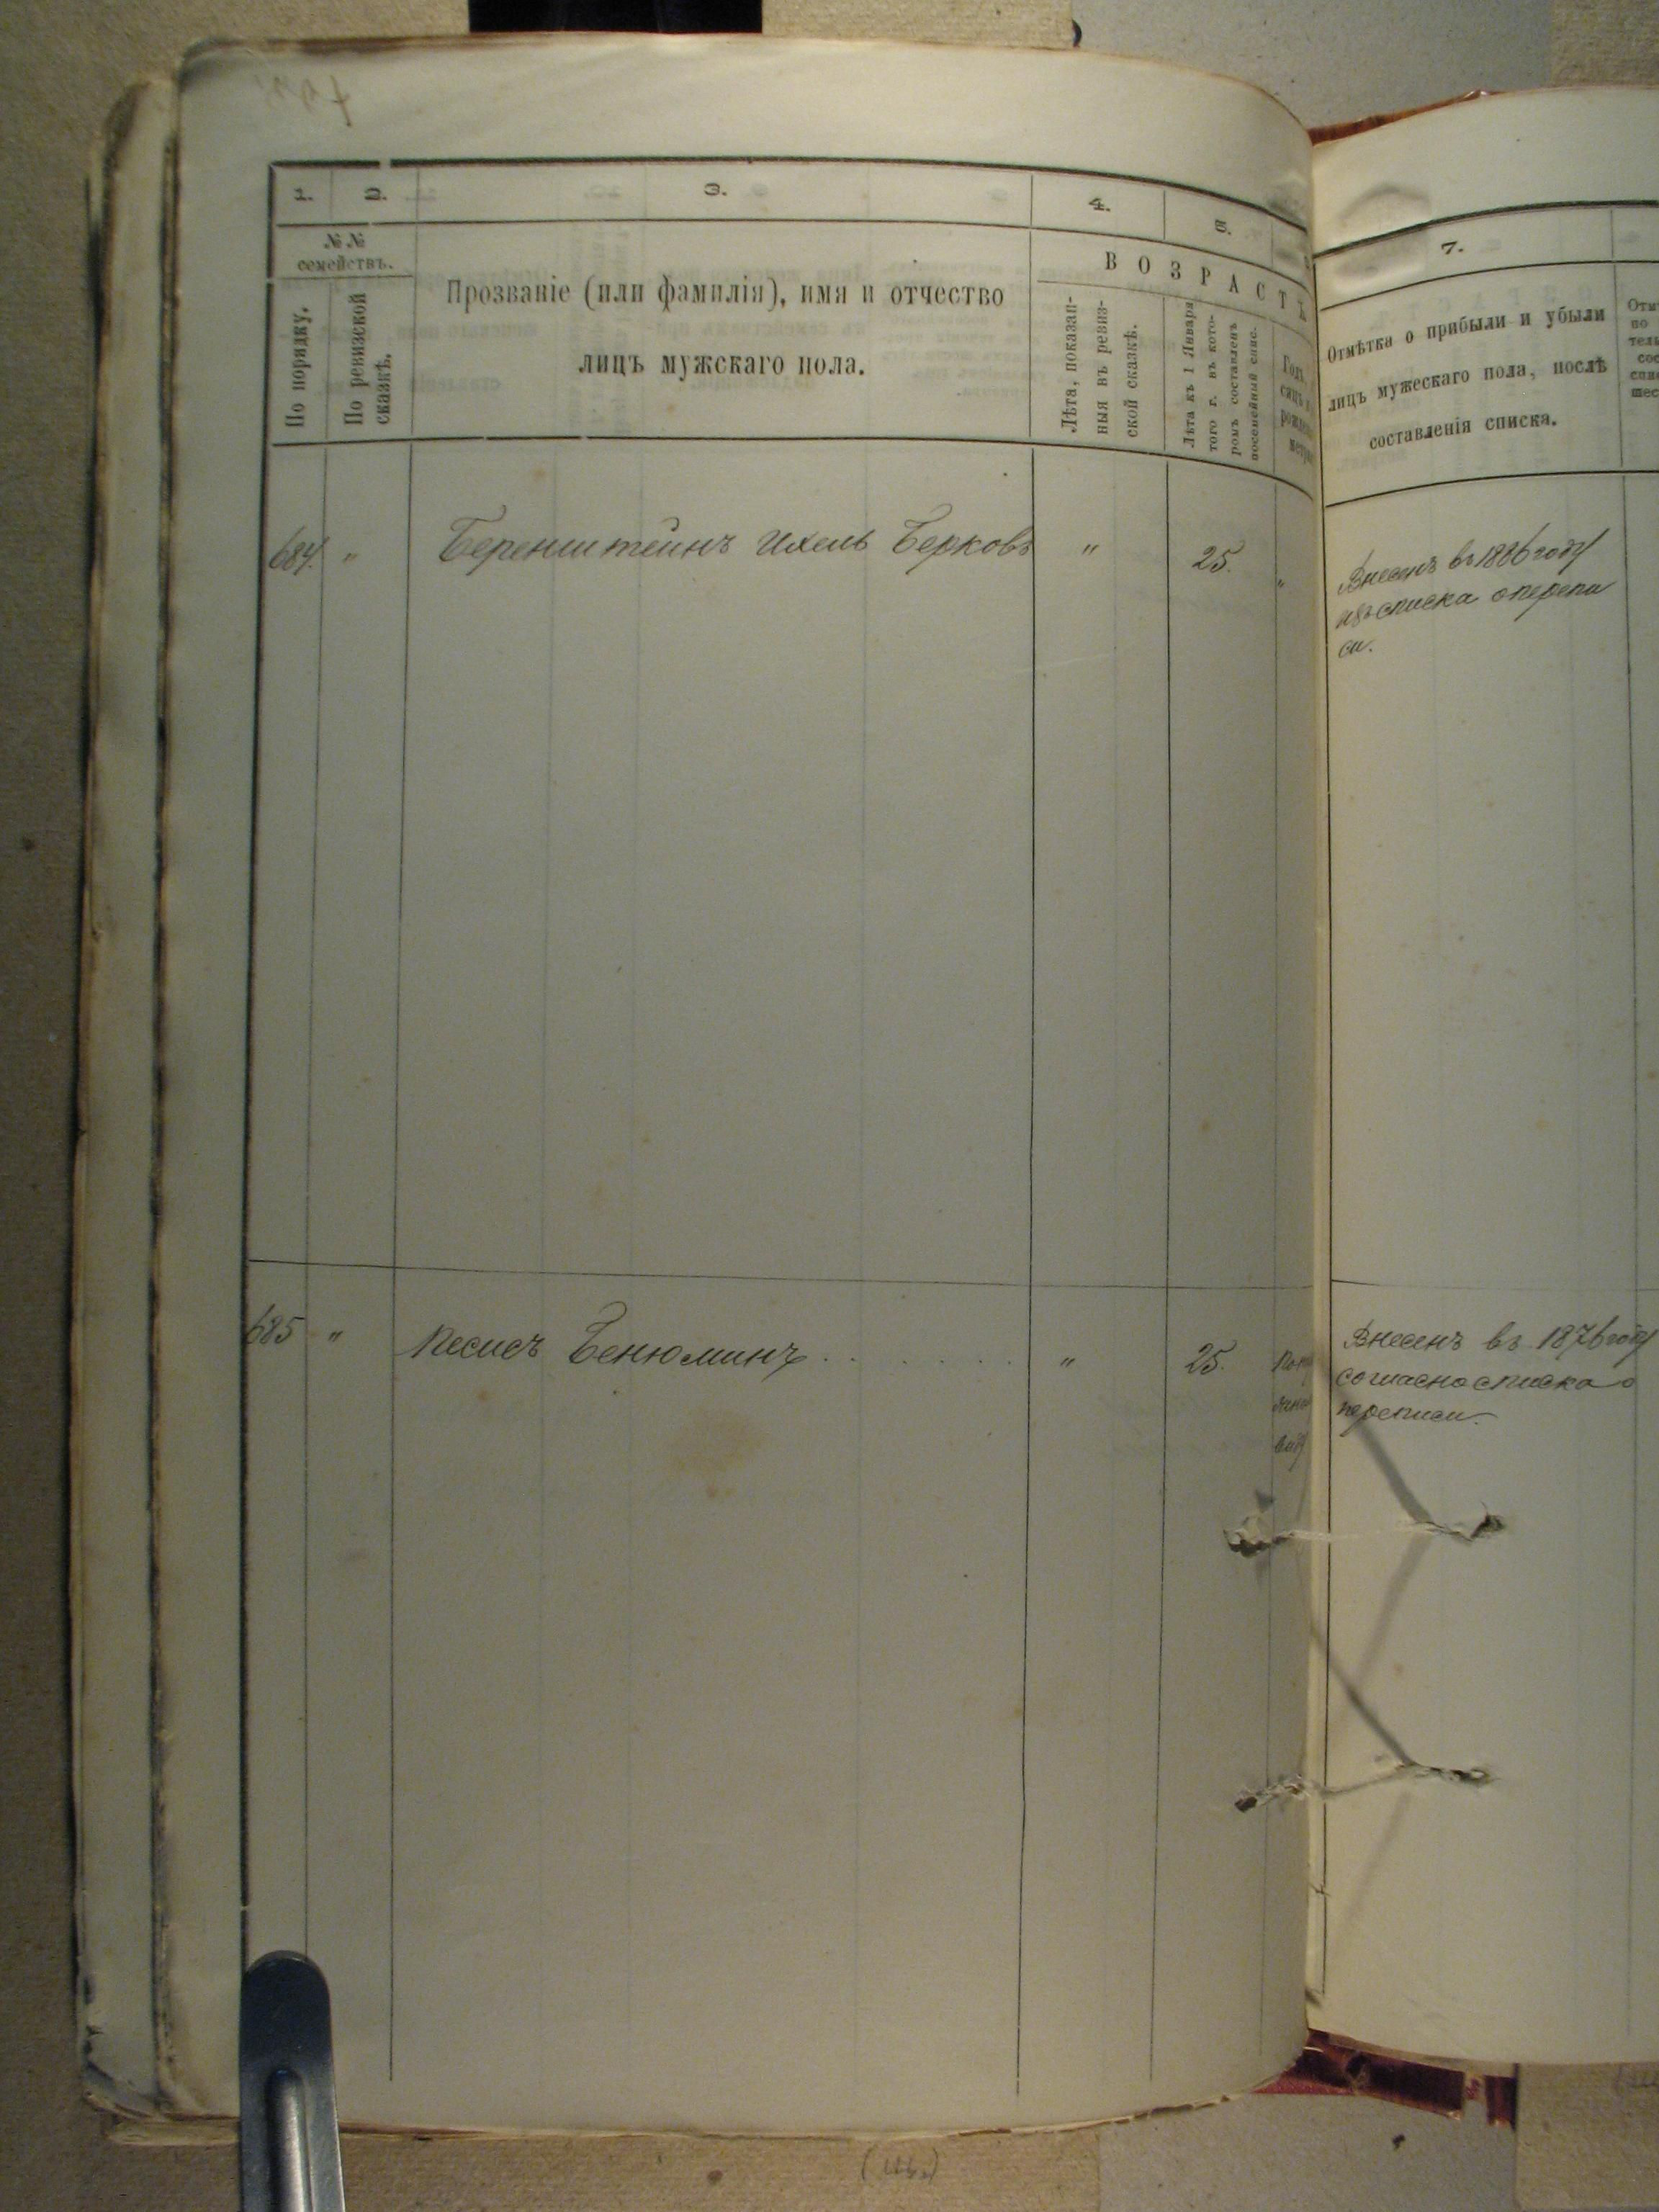 1. 2. 3. 4. 5. 7.
№ №
семействъ.
По порядку.
По ревизской
сказкѣ.
Прозваніе (или фамилія), имя и отчество
лицъ мужскаго пола.
ВОЗРАСТЪ
Лѣта, показан-
ныя въ ревиз-
ской сказкѣ.
Лѣта къ 1 Января
того г. въ кото-
ромъ составленъ
посемейный спис.
Отмѣтка о прибыли и убыли
лицъ мужескаго пола, послѣ
составленія списка.
684. " Беренштейнъ Ихель Берковъ " 25. "
Внесенъ въ 1886 году
изъ списка о перепи
си.
685 " Песисъ Бенюминъ . . . . . . . " 25.
Внесенъ въ 1876 году
согласно списка о
переписи.